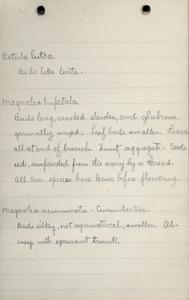 Betula lutea
Buds like lenta.
Magnolia tripetala
Buds long, crooked, slender, and glabrous,
generally curved. Leaf buds smaller. Leaves
all at end of branch. Fruit aggregate. Seeds
red, suspended from the ovary by a thread.
All Am. species have leaves before flowering.
Magnolia acuminata - Cucumber tree.
Buds silky, not symmetrical, smaller. Al-
ways with excurrent trunk.